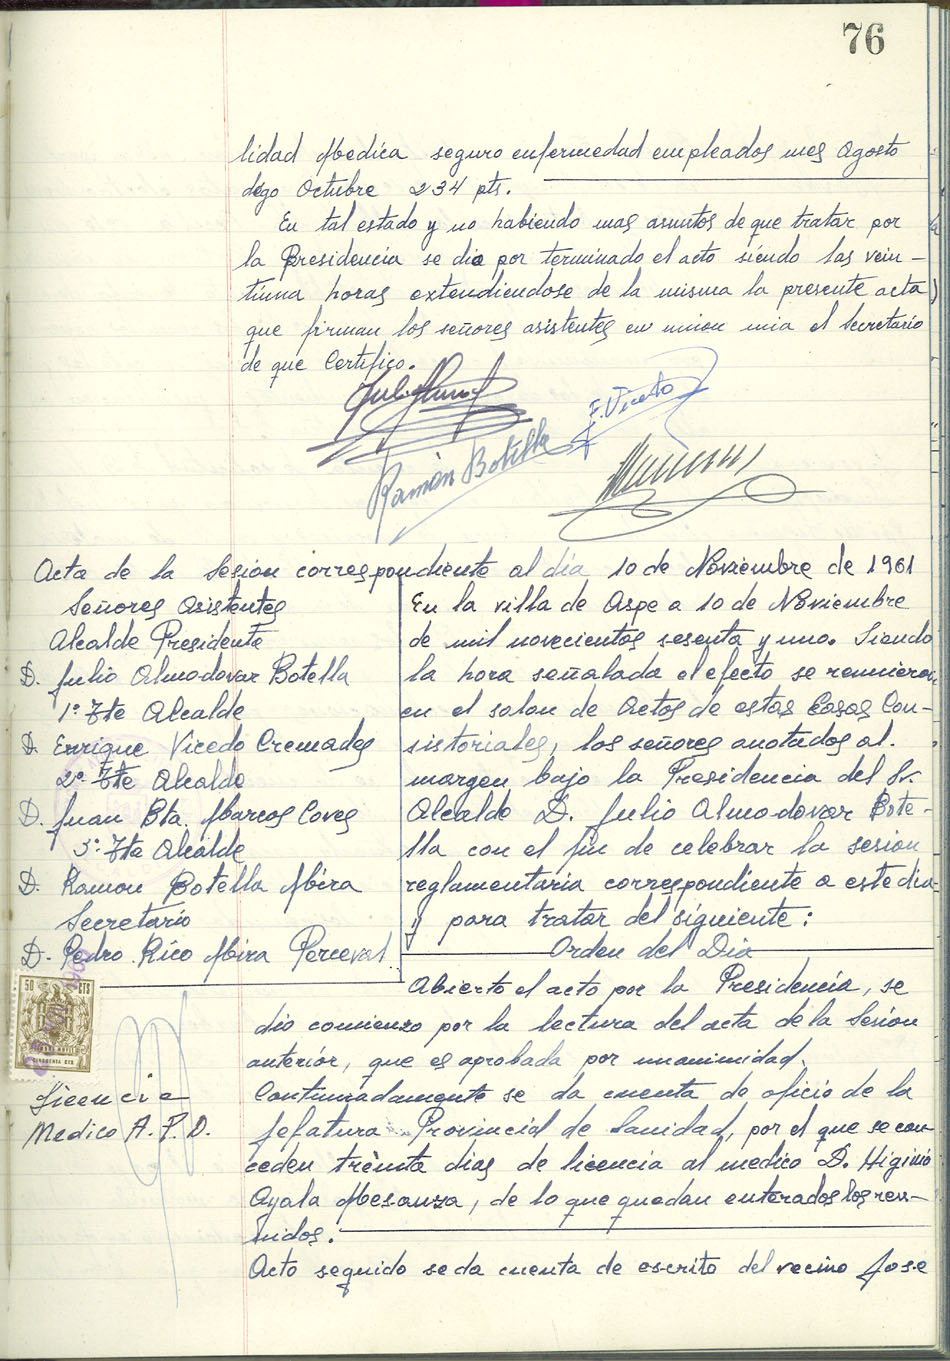 76
lidad Medica seguro enfermedad empleados mes Agosto
digo Octubre 234 pts.
En tal estado y no habiendo mas asuntos de que tratar por
la Presidencia se dio por terminado el acto siendo las vein-
tiuna horas extendiendose de la misma la presente acta
que firman los señores asistentes en union mia el Secretario
de que Certifico.
F. Vicedo
Ramón Botella
Acta de la Sesion correspondiente al día 10 de Noviembre de 1961
Señores Asistentes
Alcalde Presidente
D. Julio Almodovar Botella
1º Tte Alcalde
D. Enrique Vicedo Cremades
2º Tte Alcalde
D. Juan Bta. Marcos Coves
3º Tte Alcalde
D. Ramon Botella Mira
Secretario
D. Pedro Rico Mira Perceval
En la villa de Aspe a 10 de Noviembre
de mil novecientos sesenta y uno. Siendo
la hora señalada el efecto se reunieron
en el salon de Actos de estas Casas Con-
sistoriales, los señores anotados al
margen bajo la Presidencia del Sr.
Alcalde D. Julio Almodovar Bote-
lla con el fin de celebrar la sesion
reglamentaria correspondiente a este dia
y para tratar del siguiente:
Orden del Dia
Abierto el acto por la Presidencia, se
dio comienzo por la lectura del acta de la Sesion
anterior, que es aprobada por unanimidad.
50 CTS
CINCUENTA CTS
Licencia
Medico A.P.D.
Continuadamente se da cuenta de oficio de la
Jefatura Provincial de Sanidad, por el que se con
ceden treinta dias de licencia al medico D. Higinio
Ayala Mesanza, de lo que quedan enterados los reu-
nidos.
Acto seguido se da cuenta de escrito del vecino José